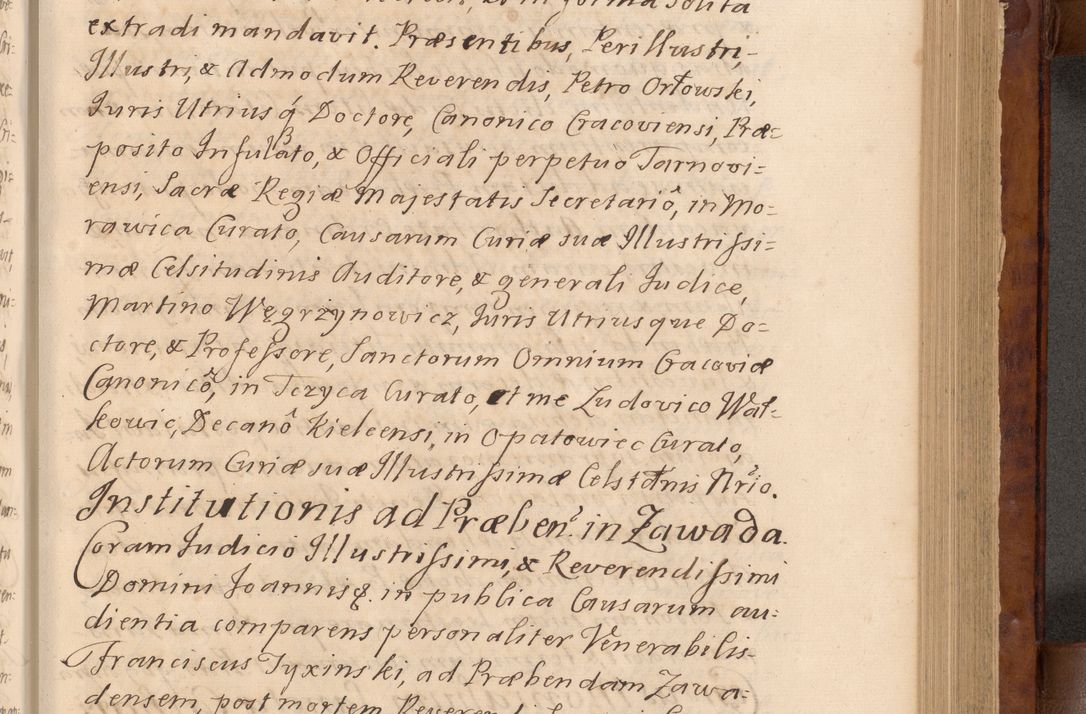 extradi mandavit. Præsentibus, Perillustri,
Illustri, & Admodum Reverendis, Petro Orłowski,
Iuris Utriusq́ Doctore, Canonico Cracoviensi, Præ=
posito Infulato, & Officiali perpetuo Tarnovi=
ensi, Sacræ Regiæ Majestatis Secretariô, in Mo=
rawica Curato, Causarum Curiæ suæ Illustrissi=
mæ Celsitudinis Auditore, & generali Iudice,
Martino Węgrzynowicz, Iuris Utriusque Do=
ctore, & Professore, Sanctorum Omnium Cracoviæ
Canonicô, in Tczyca Curato, et me Ludovico Wał=
kowic, Decanô Kielcensi, in Opatowiec Curato,
Actorum Curiæ suæ Illustrissimæ Celstđnis Nrio.
Institutionis ad Præben. in Zawada.
Coram Iudicio Illustrissimi, & Reverendissimi
Domini Joannis &. in publica Causarum au=
dientia comparens personaliter Venerabilis
Franciscus Tyxinski, ad Præbendam Zawa=
densem, post mortem